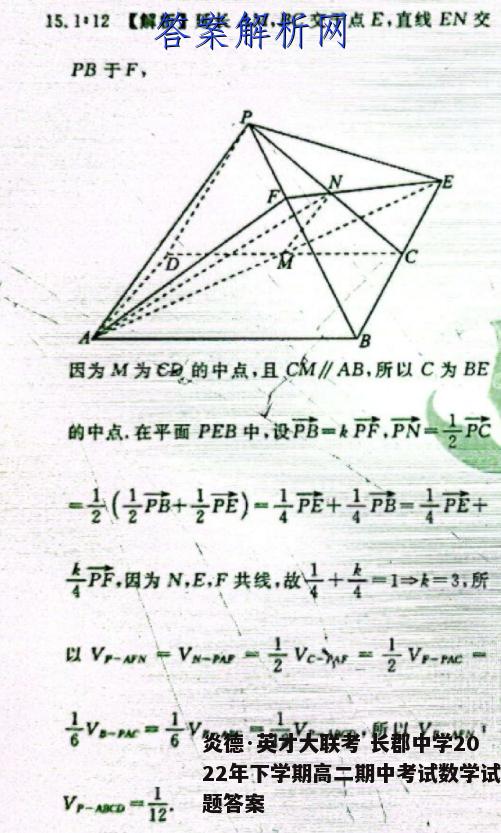 15. 1∶12 【解析】延长 交 点 E,直线 EN 交
答案解析网
PB 于 F,
P
N
E
F
D
M
C
A
B
因为 M 为 CD 的中点,且 CM∥AB,所以 C 为 BE
的中点.在平面 PEB 中,设 $\overrightarrow{PB}=k\overrightarrow{PF}$,$\overrightarrow{PN}=\frac{1}{2}\overrightarrow{PC}$
$=\frac{1}{2}\left(\frac{1}{2}\overrightarrow{PB}+\frac{1}{2}\overrightarrow{PE}\right)=\frac{1}{4}\overrightarrow{PE}+\frac{1}{4}\overrightarrow{PB}=\frac{1}{4}\overrightarrow{PE}+$
$\frac{k}{4}\overrightarrow{PF}$,因为 N,E,F 共线,故 $\frac{1}{4}+\frac{k}{4}=1\Rightarrow k=3$,所
以 $V_{P-AFN}=V_{N-PAF}=\frac{1}{2}V_{C-PAF}=\frac{1}{2}V_{F-PAC}=$
$\frac{1}{6}V_{B-PAC}=\frac{1}{6}$ 所以
炎德·英才大联考 长郡中学20
22年下学期高二期中考试数学试
题答案
$V_{P-ABCD}=\frac{1}{12}$.